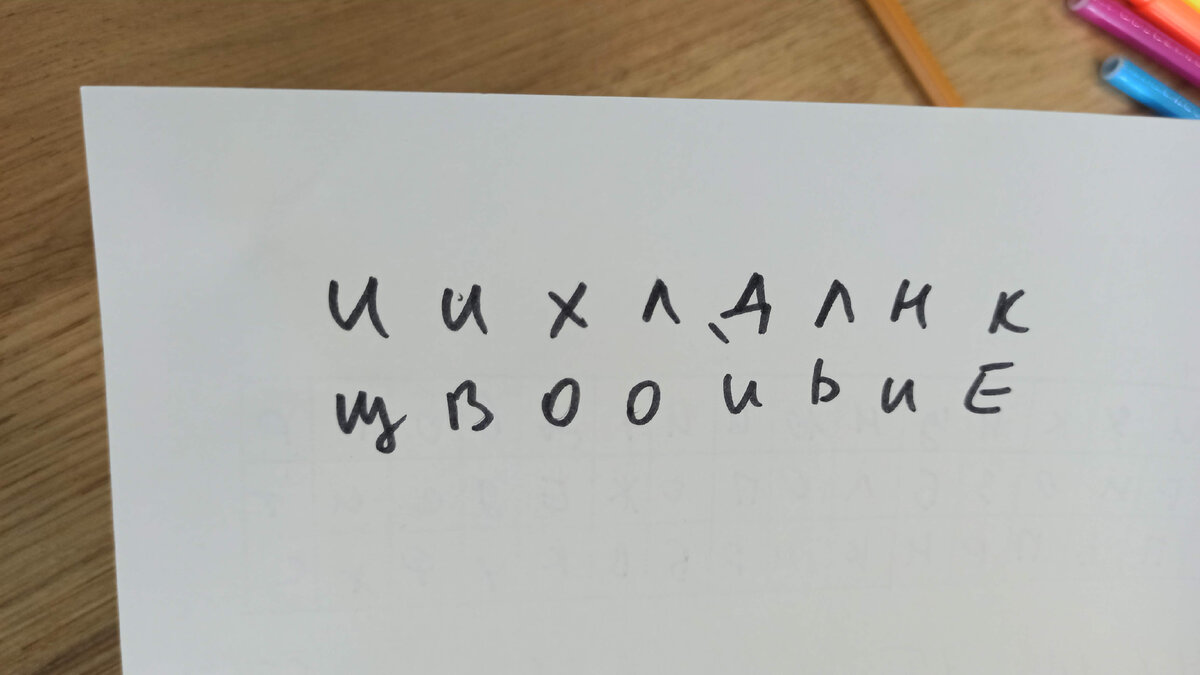 И И Х Л Д Л Н К
Щ В О О И Ь И Е